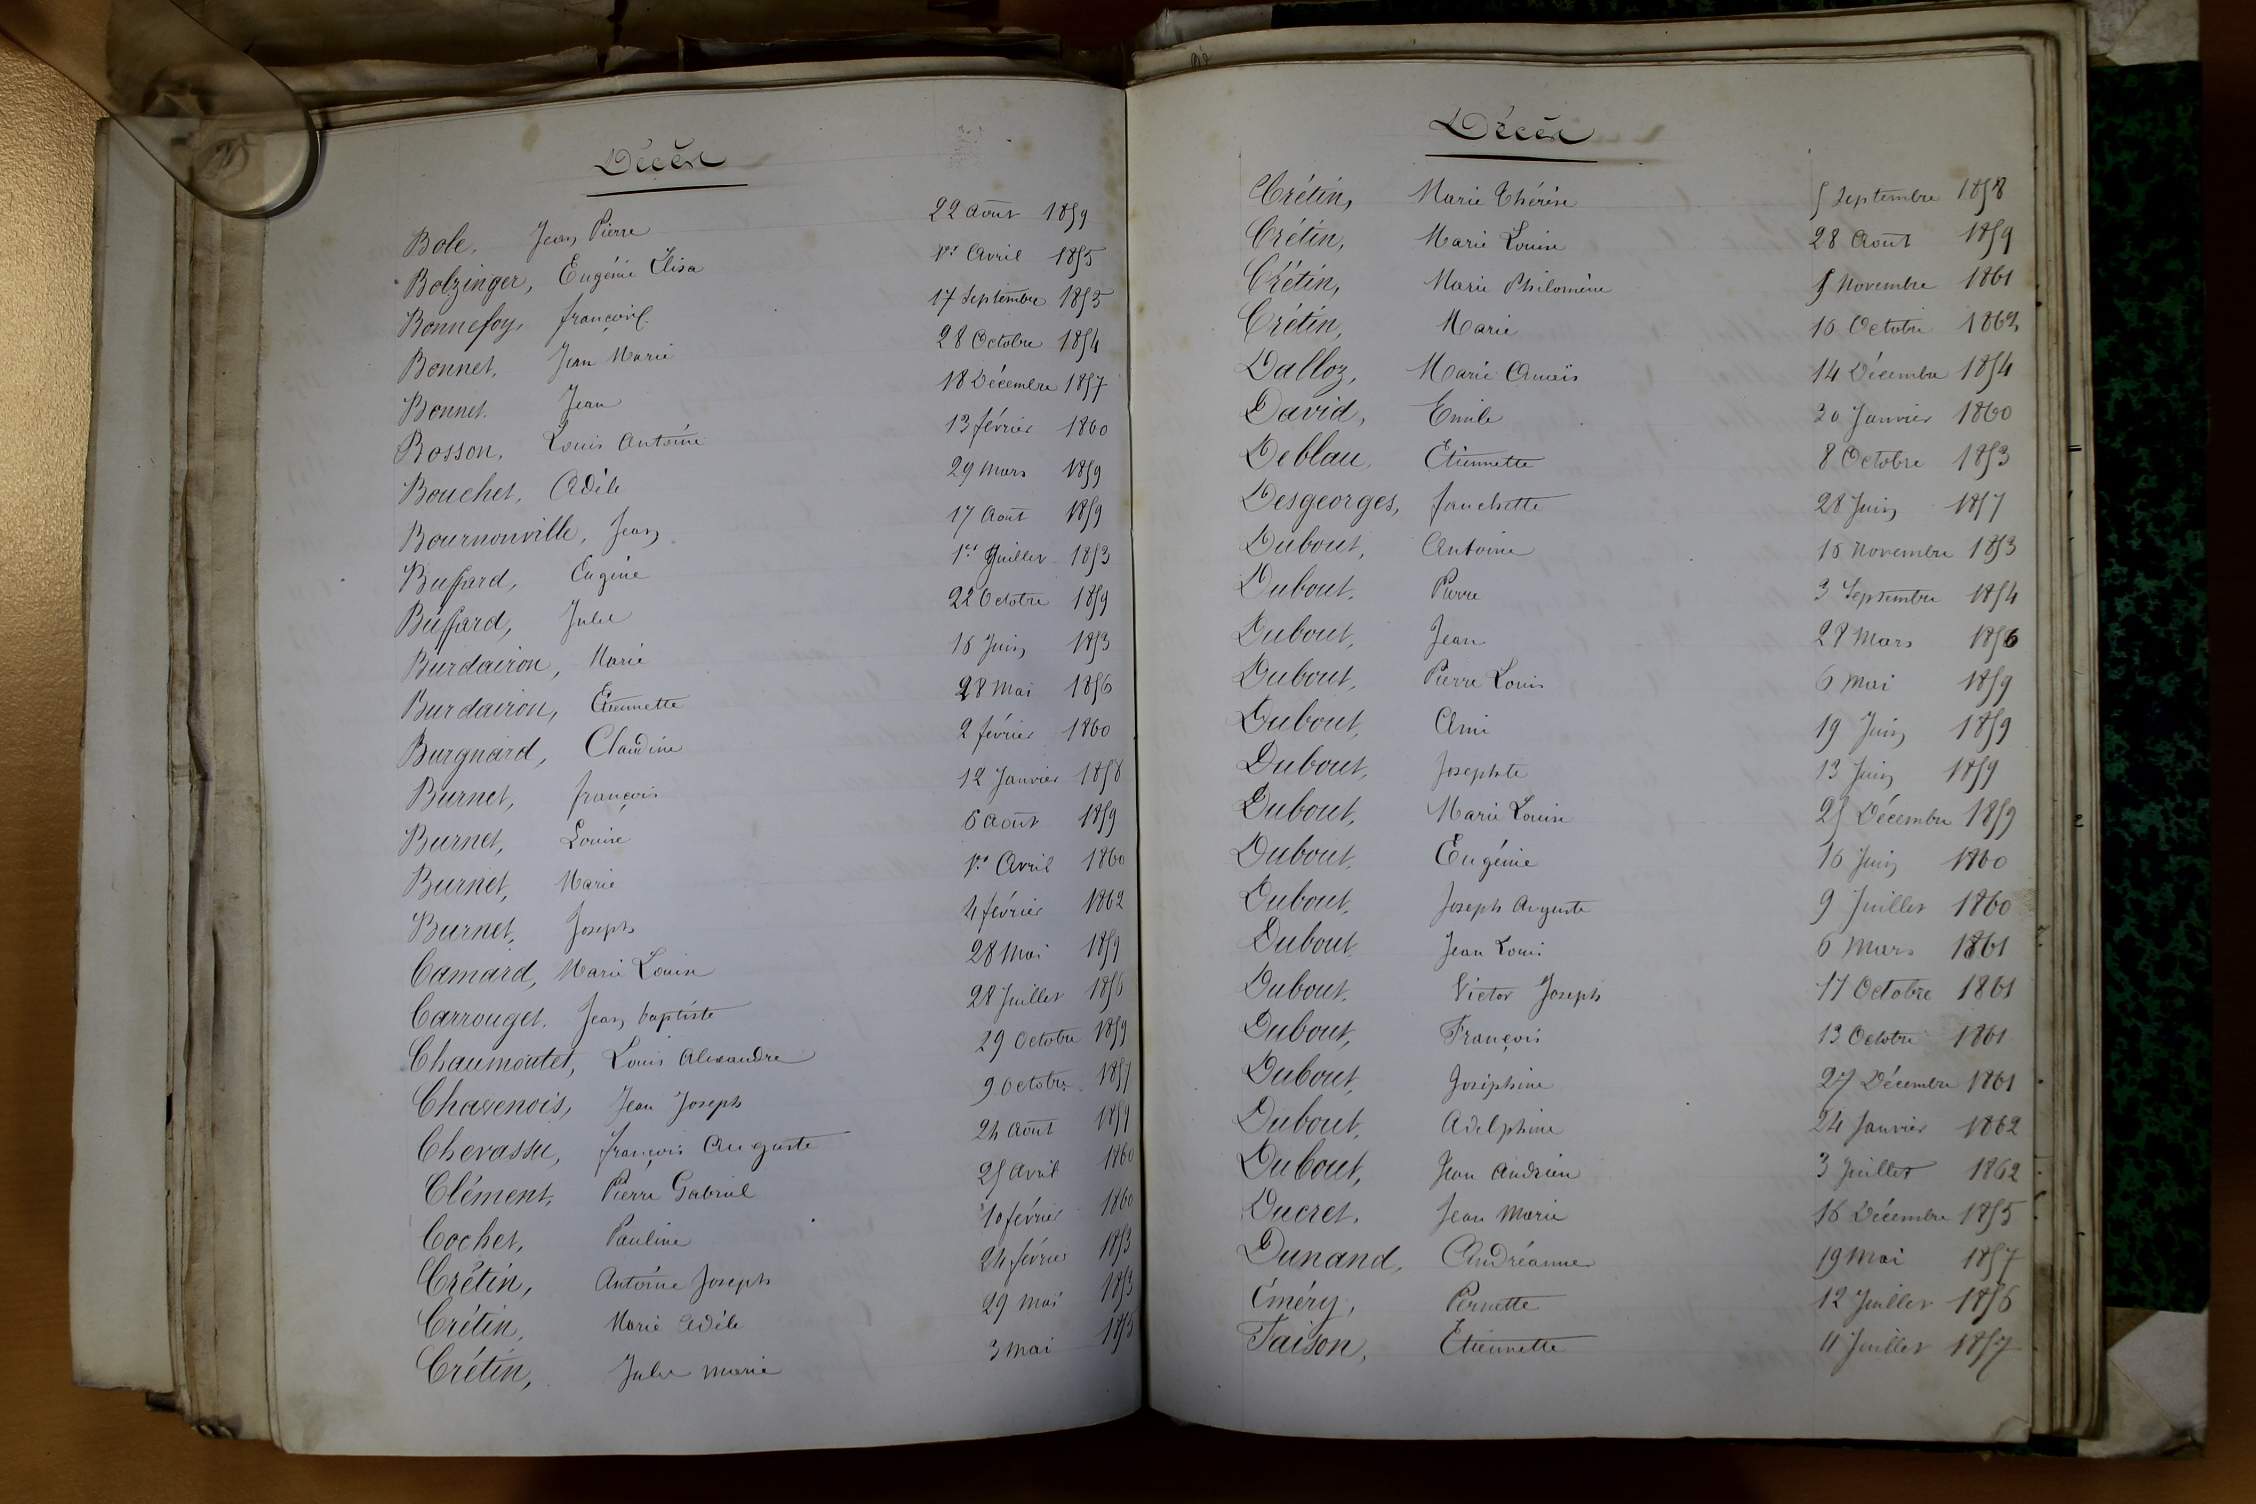 Décès
Bole, Jean Pierre 22 Août 1859
Bolzinger, Eugénie Élisa 1er Avril 1855
Bonnefoy, françoise 17 Septembre 1855
Bonnet, Jean Marie 28 Octobre 1854
Bonnet Jean 18 Décembre 1857
Bosson, Louis Antoine 13 février 1860
Bouchet, Adèle 29 Mars 1859
Bournonville, Jean 17 Août 1859
Buffard, Eugène 1er Juillet 1853
Buffard, Jules 22 Octobre 1859
Burdairon, Marie 16 Juin 1853
Burdairon, Etiennette 28 Mai 1856
Burgnard, Claudine 2 février 1860
Burnet, françois 12 Janvier 1858
Burnet, Louise 6 Août 1859
Burnet, Marie 1er Avril 1860
Burnet, Joseph 4 février 1862
Camard, Marie Louise 28 Mai 1859
Carrouget, Jean baptiste 28 Juillet 1856
Chaumontet, Louis Alexandre 29 Octobre 1859
Charenois, Jean Joseph 9 Octobre 1857
Chevassu, françois Auguste 24 Août 1859
Clément, Pierre Gabriel 25 Avril 1860
Cochet, Pauline 10 février 1860
Crétin, Antoine Joseph 24 février 1853
Crétin, Marie Adèle 29 Mai 1853
Crétin, Jules Marie 3 Mai 1855
Décès
Crétin, Marie Thérèse 5 Septembre 1858
Crétin, Marie Louise 28 Août 1859
Crétin, Marie Philomène 5 Novembre 1861
Crétin, Marie 16 Octobre 1862
Dalloz, Marie Anaïs 14 Décembre 1854
David, Emile 30 Janvier 1860
Deblau, Etiennette 8 Octobre 1853
Desgeorges, fanchette 28 Juin 1857
Dubout, Antoine 16 Novembre 1853
Dubout, Pierre 3 Septembre 1854
Dubout, Jean 28 Mars 1856
Dubout, Pierre Louis 6 Mai 1859
Dubout, Ami 19 Juin 1859
Dubout, Josephte 13 Juin 1859
Dubout, Marie Louise 25 Décembre 1859
Dubout, Eugénie 16 Juin 1860
Dubout, Joseph Auguste 9 Juillet 1860
Dubout, Jean Louis 6 Mars 1861
Dubout, Victor Joseph 11 Octobre 1861
Dubout, François 13 Octobre 1861
Dubout, Joséphine 27 Décembre 1861
Dubout, Adelphine 24 Janvier 1862
Dubout, Jean Andrien 3 Juillet 1862
Ducret, Jean Marie 16 Décembre 1855
Dunand, Andréanne 19 Mai 1857
Éméry, Pernette 12 Juillet 1856
Faison, Etiennette 11 Juillet 1857